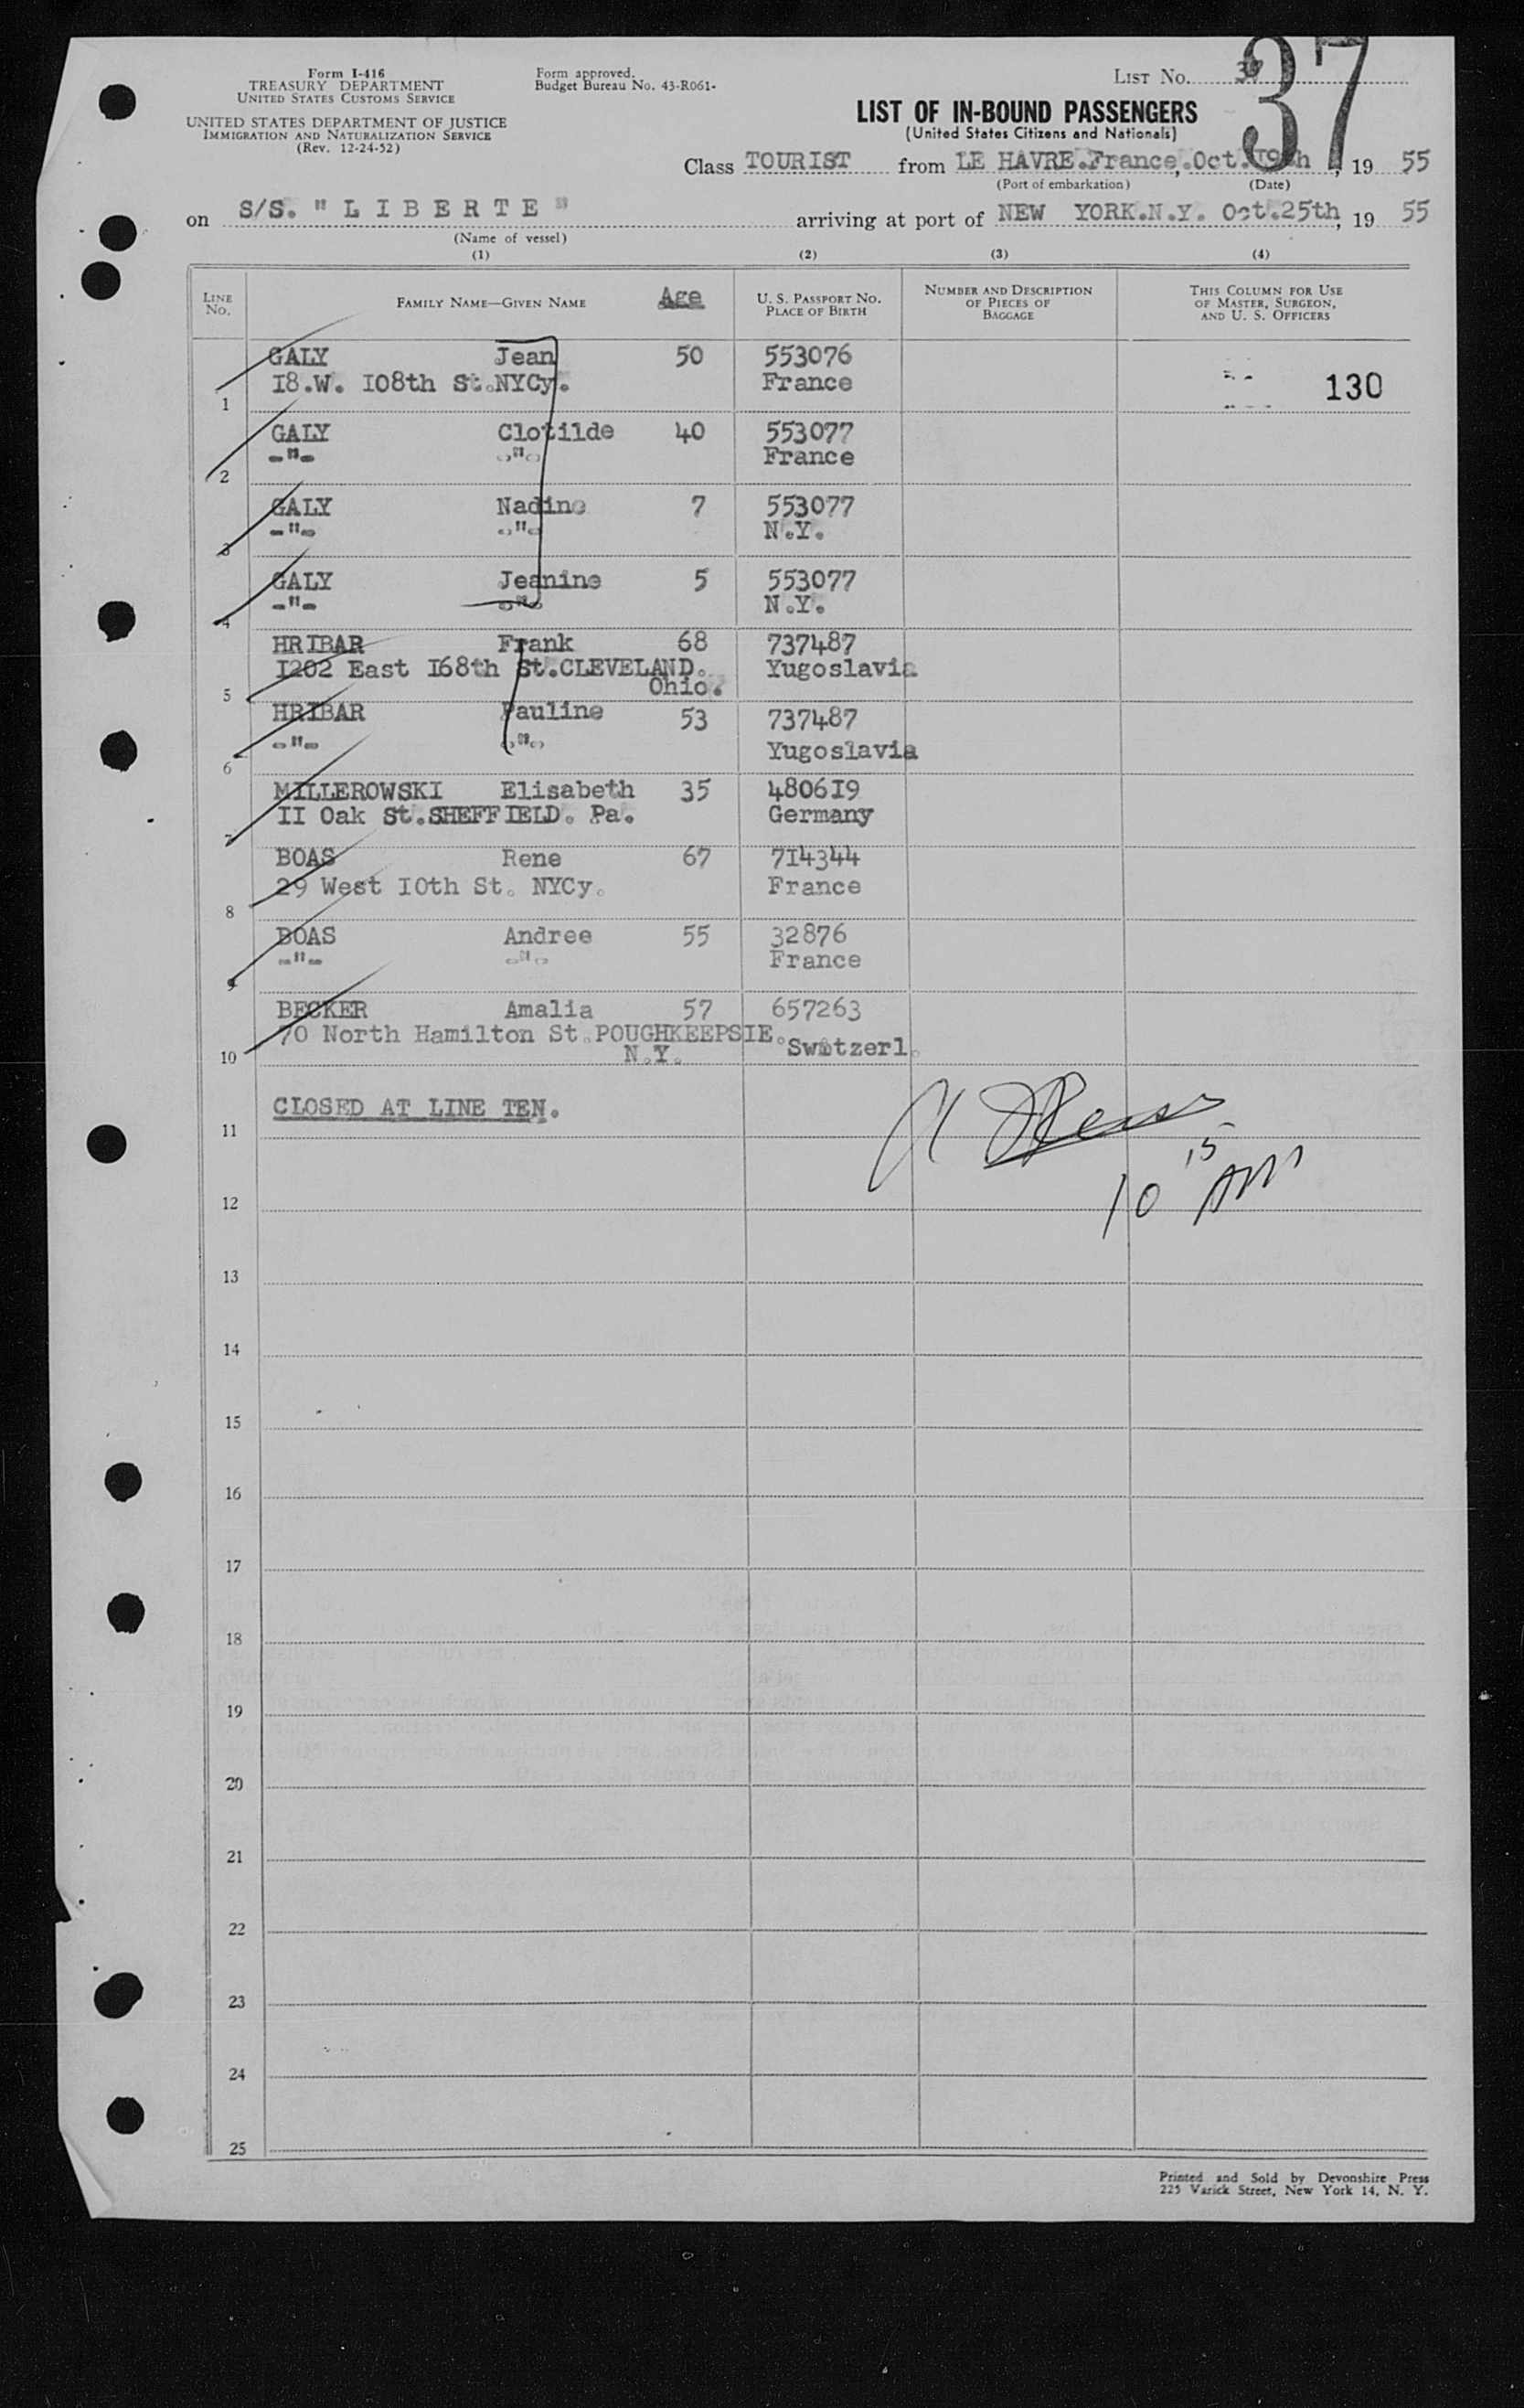 Form I-416
TREASURY DEPARTMENT
UNITED STATES CUSTOMS SERVICE
UNITED STATES DEPARTMENT OF JUSTICE
IMMIGRATION AND NATURALIZATION SERVICE
(Rev. 12-24-52)
Form approved.
Budget Bureau No. 43-R061-
LIST No. 37
37
LIST OF IN-BOUND PASSENGERS
(United States Citizens and Nationals)
Class TOURIST from LE HAVRE.France, Oct. 19th, 19 55
(Port of embarkation) (Date)
on S/S. "LIBERTE" arriving at port of NEW YORK.N.Y. Oct.25th, 19 55
(Name of vessel)
(1) (2) (3) (4)
LINE No. FAMILY NAME—GIVEN NAME Age U. S. PASSPORT NO. PLACE OF BIRTH NUMBER AND DESCRIPTION OF PIECES OF BAGGAGE THIS COLUMN FOR USE OF MASTER, SURGEON, AND U. S. OFFICERS
GALY Jean 50 553076
1 I8.W. I08th St.NYCy. France 130
GALY Clotilde 40 553077
2 -"- -"- France
GALY Nadine 7 553077
3 -"- -"- N.Y.
GALY Jeanine 5 553077
4 -"- -"- N.Y.
HRIBAR Frank 68 737487
I202 East I68th St.CLEVELAND. Yugoslavia
5 Ohio.
HRIBAR Pauline 53 737487
6 -"- -"- Yugoslavia
MILLEROWSKI Elisabeth 35 4806I9
7 II Oak St.SHEFFIELD. Pa. Germany
BOAS Rene 67 7I4344
8 29 West I0th St. NYCy. France
BOAS Andree 55 32876
9 -"- -"- France
BECKER Amalia 57 657263
70 North Hamilton St.POUGHKEEPSIE. Switzerl.
10 N.Y.
11 CLOSED AT LINE TEN.
10 15 AM
12
13
14
15
16
17
18
19
20
21
22
23
24
25
Printed and Sold by Devonshire Press
225 Varick Street, New York 14, N. Y.